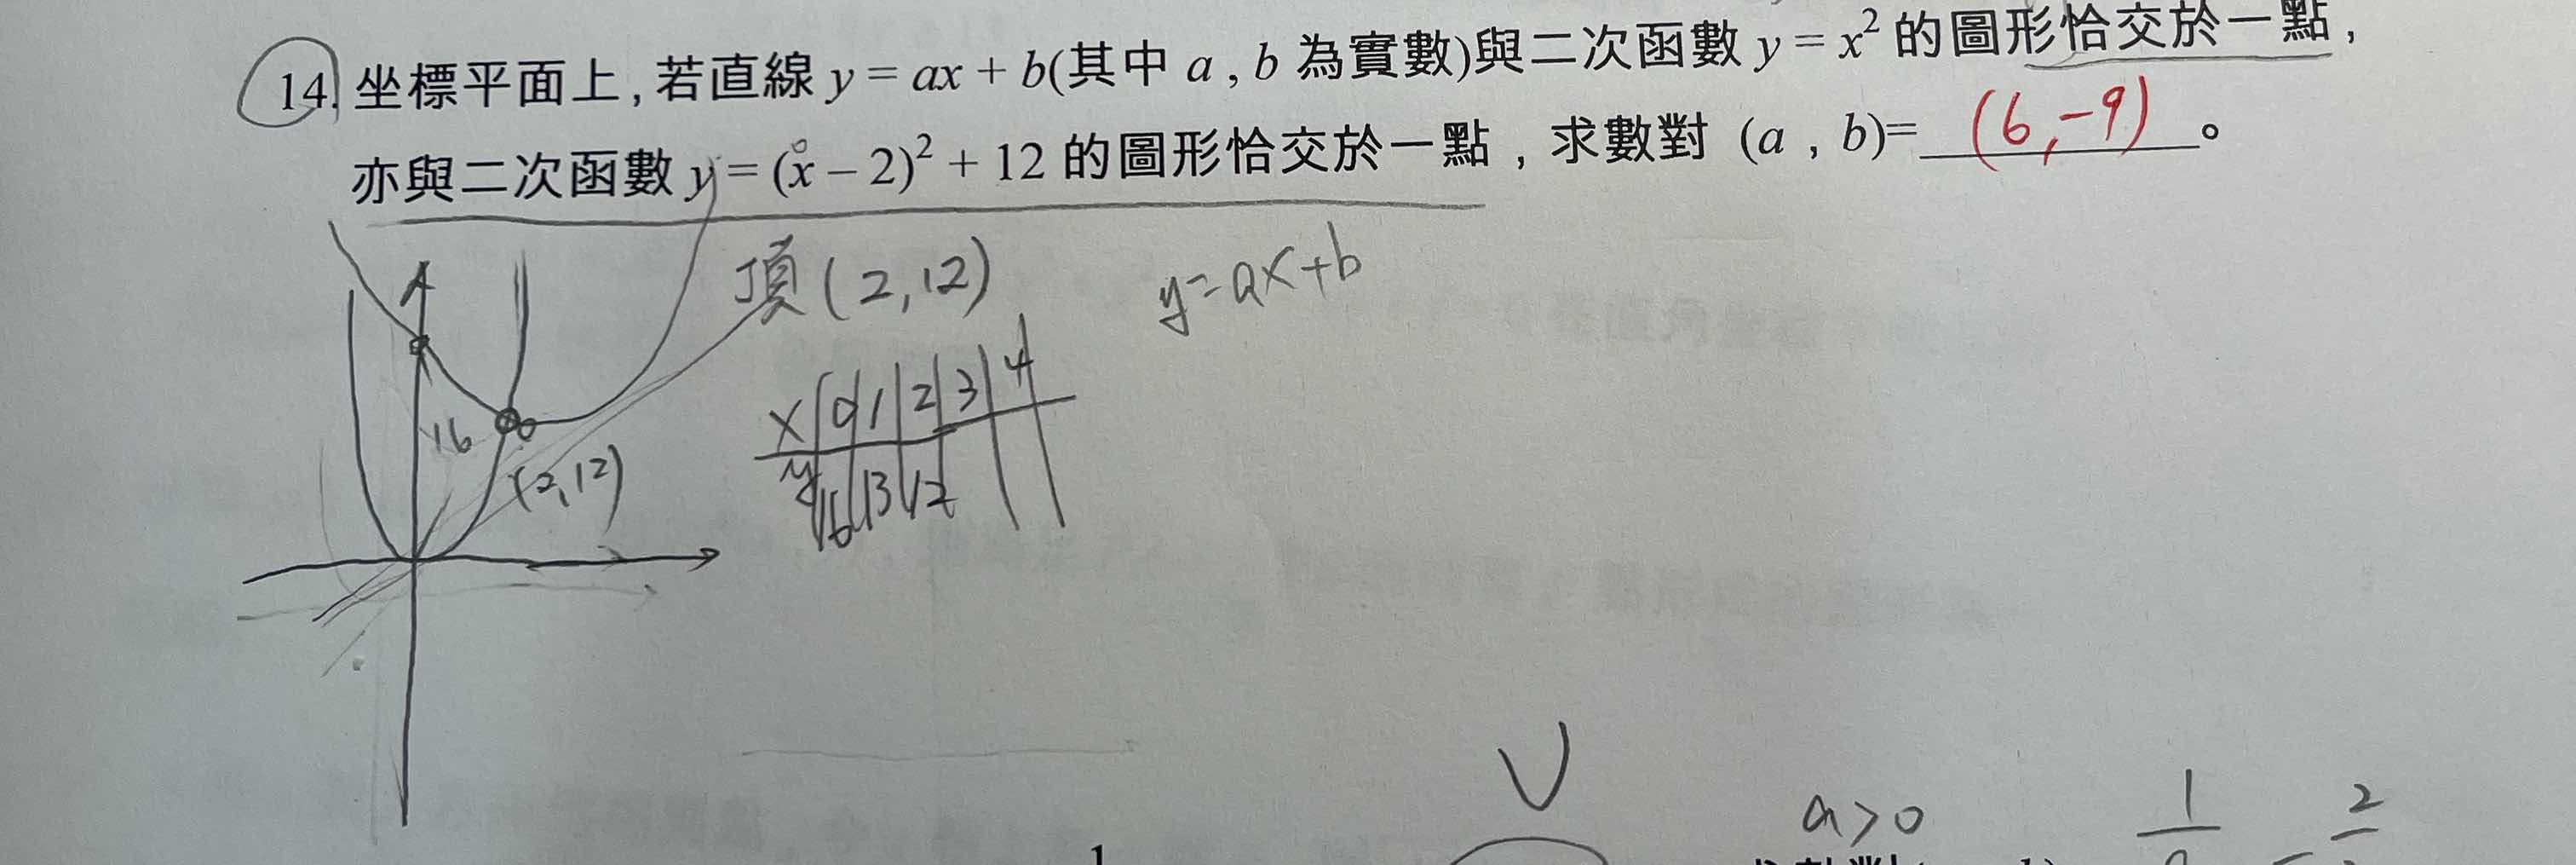 14. 坐標平面上,若直線 y = ax + b(其中 a , b 為實數)與二次函數 y = x² 的圖形恰交於一點,
亦與二次函數 y = (x – 2)² + 12 的圖形恰交於一點,求數對 (a , b)= (6,-9) 。
頂(2,12) y=ax+b
16
(2,12)
x 0 1 2 3 4
y 16 13 12
a>0 1 2
1